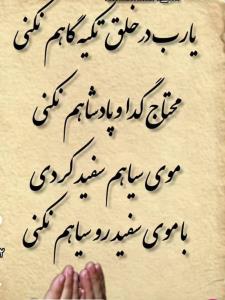 یارب در خلق تکیه گاهم نکنی
محتاج گدا و پادشاهم نکنی
موی سیاهم سفید کردی
با موی سفید رو سیاهم نکنی